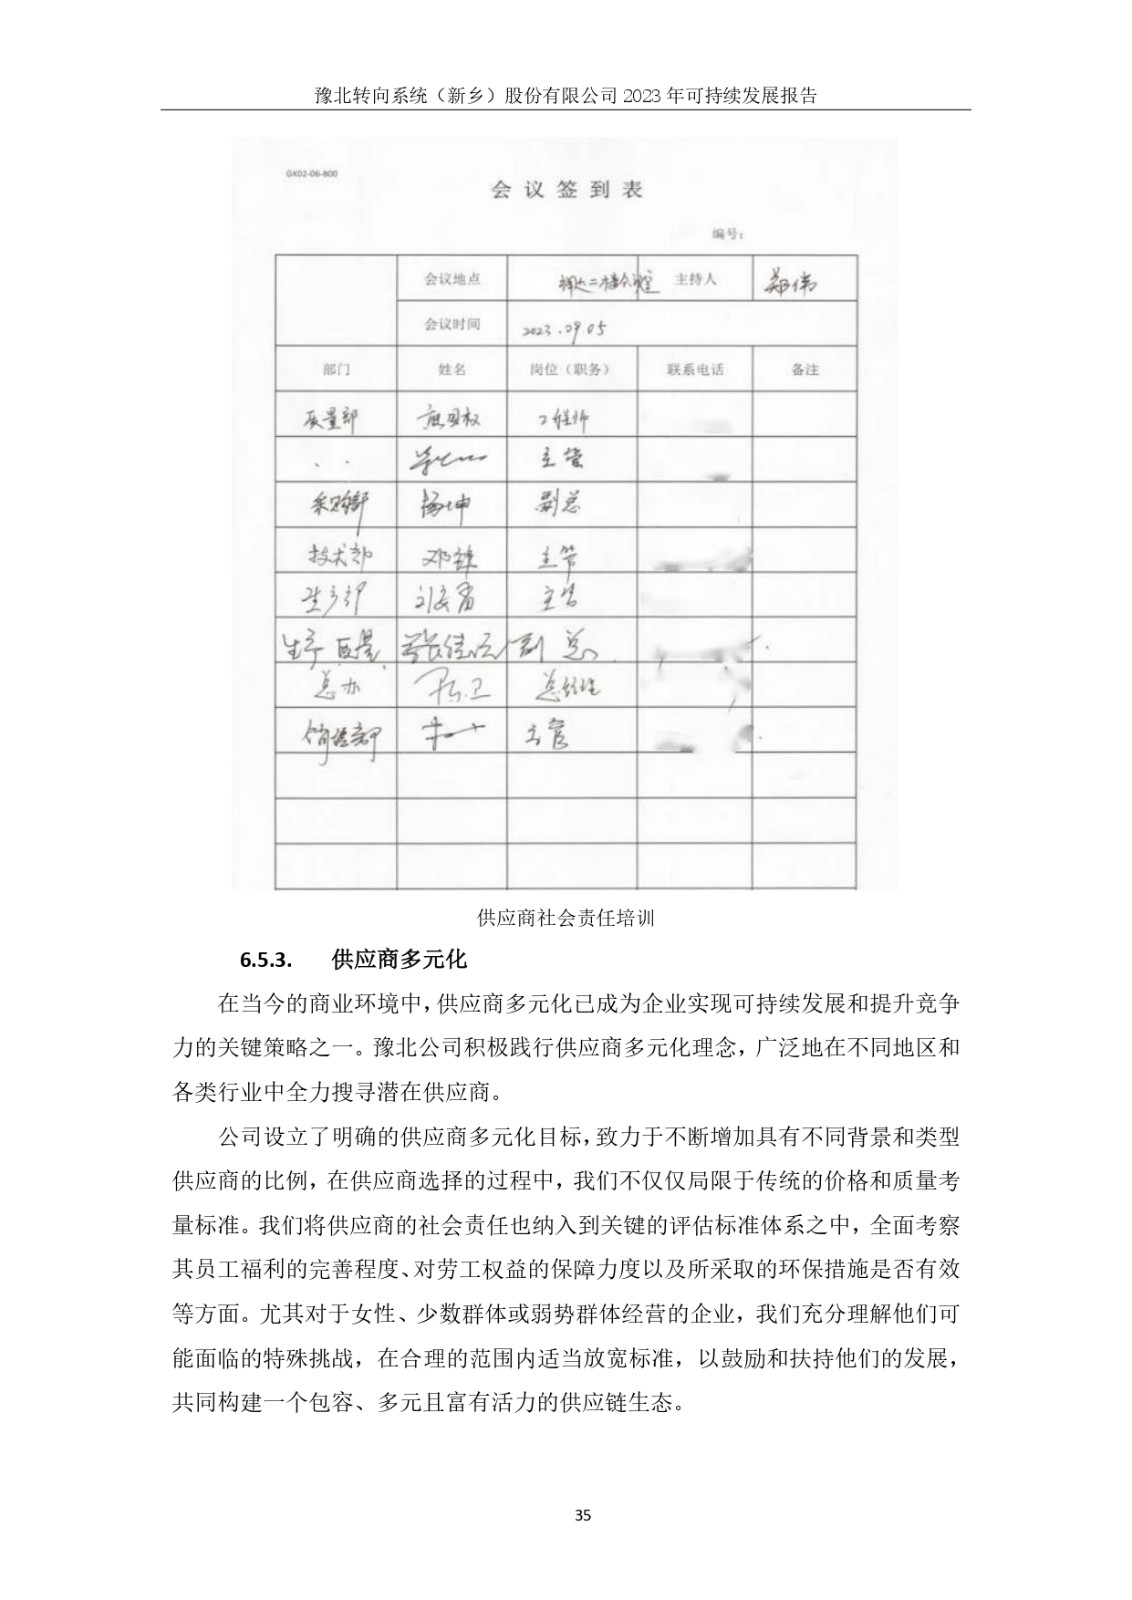 豫北转向系统（新乡）股份有限公司 2023 年可持续发展报告
GK02-06-800
会 议 签 到 表
编号：
会议地点 二楼会议室 主持人 郑伟
会议时间 2023.09.05
部门 姓名 岗位（职务） 联系电话 备注
质量部 工程师
主管
采购部 杨坤 副总
技术部 主管
生产部 主管
生产 质量 副总
总办 总经理
销售部 主管
供应商社会责任培训
6.5.3. 供应商多元化
在当今的商业环境中，供应商多元化已成为企业实现可持续发展和提升竞争
力的关键策略之一。豫北公司积极践行供应商多元化理念，广泛地在不同地区和
各类行业中全力搜寻潜在供应商。
公司设立了明确的供应商多元化目标，致力于不断增加具有不同背景和类型
供应商的比例，在供应商选择的过程中，我们不仅仅局限于传统的价格和质量考
量标准。我们将供应商的社会责任也纳入到关键的评估标准体系之中，全面考察
其员工福利的完善程度、对劳工权益的保障力度以及所采取的环保措施是否有效
等方面。尤其对于女性、少数群体或弱势群体经营的企业，我们充分理解他们可
能面临的特殊挑战，在合理的范围内适当放宽标准，以鼓励和扶持他们的发展，
共同构建一个包容、多元且富有活力的供应链生态。
35